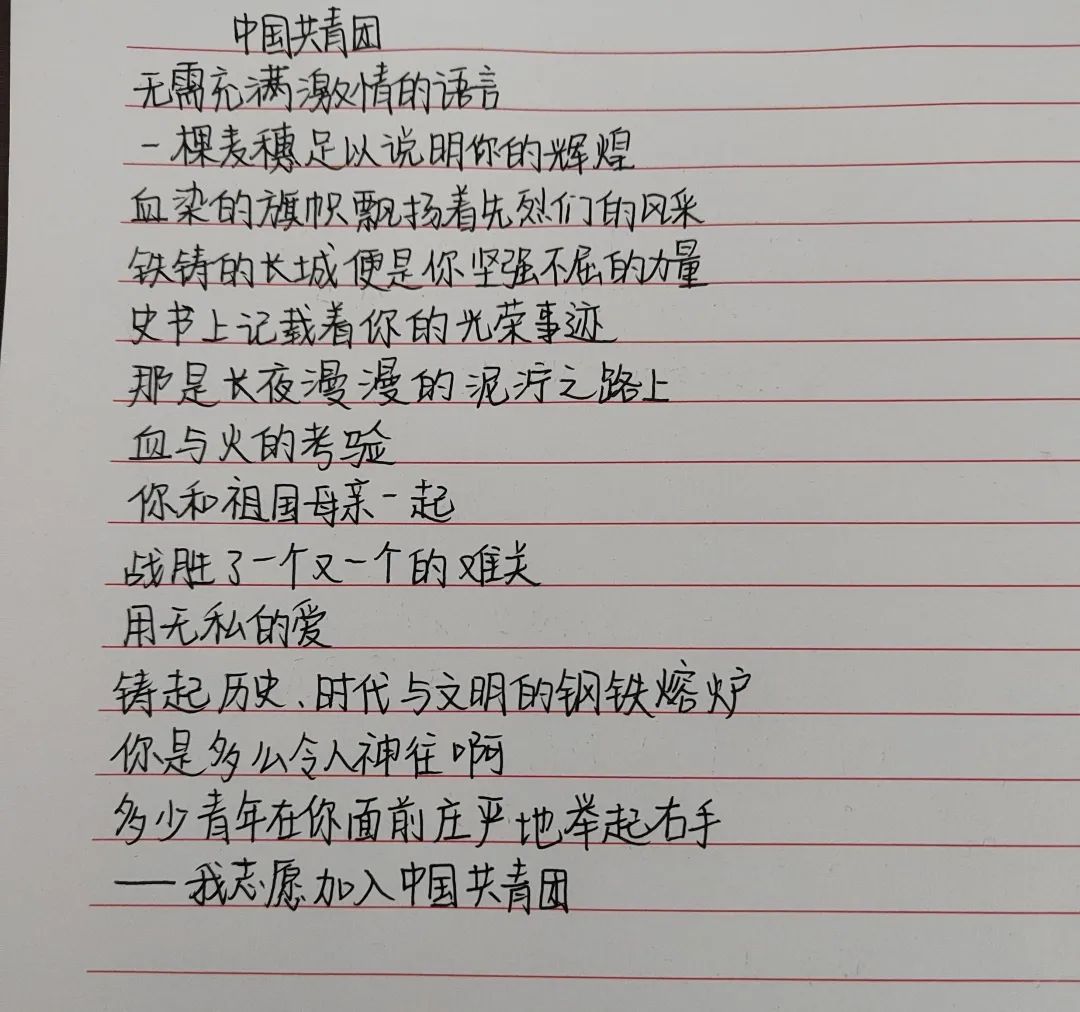 中国共青团
无需充满激情的语言
一棵麦穗足以说明你的辉煌
血染的旗帜飘扬着先烈们的风采
铁铸的长城便是你坚强不屈的力量
史书上记载着你的光荣事迹
那是长夜漫漫的泥泞之路上
血与火的考验
你和祖国母亲一起
战胜了一个又一个的难关
用无私的爱
铸起历史、时代与文明的钢铁熔炉
你是多么令人神往啊
多少青年在你面前庄严地举起右手
——我志愿加入中国共青团